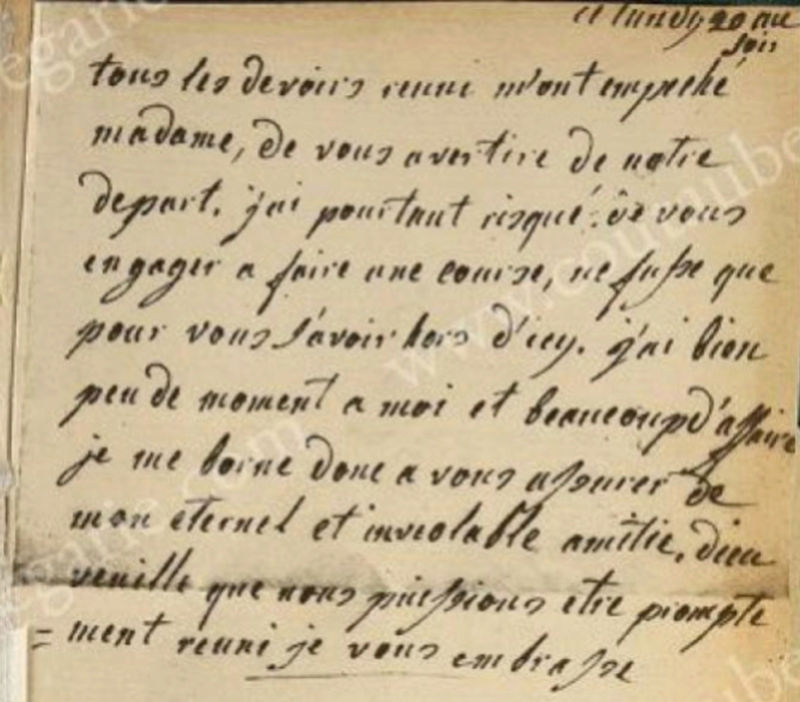 ce lundy 20 au
soir
tous les devoirs reuni m'ont empeché
madame, de vous avertire de notre
depart. j'ai pourtant risqué de vous
engager a faire une course, ne fusse que
pour vous savoir hors d'icy. j'ai bien
peu de moment a moi et beaucoup d'affaire
je me borne donc a vous assurer de
mon eternel et inviolable amitie. dieu
veuille que nous puissions etre prompte
=ment reuni je vous embrasse